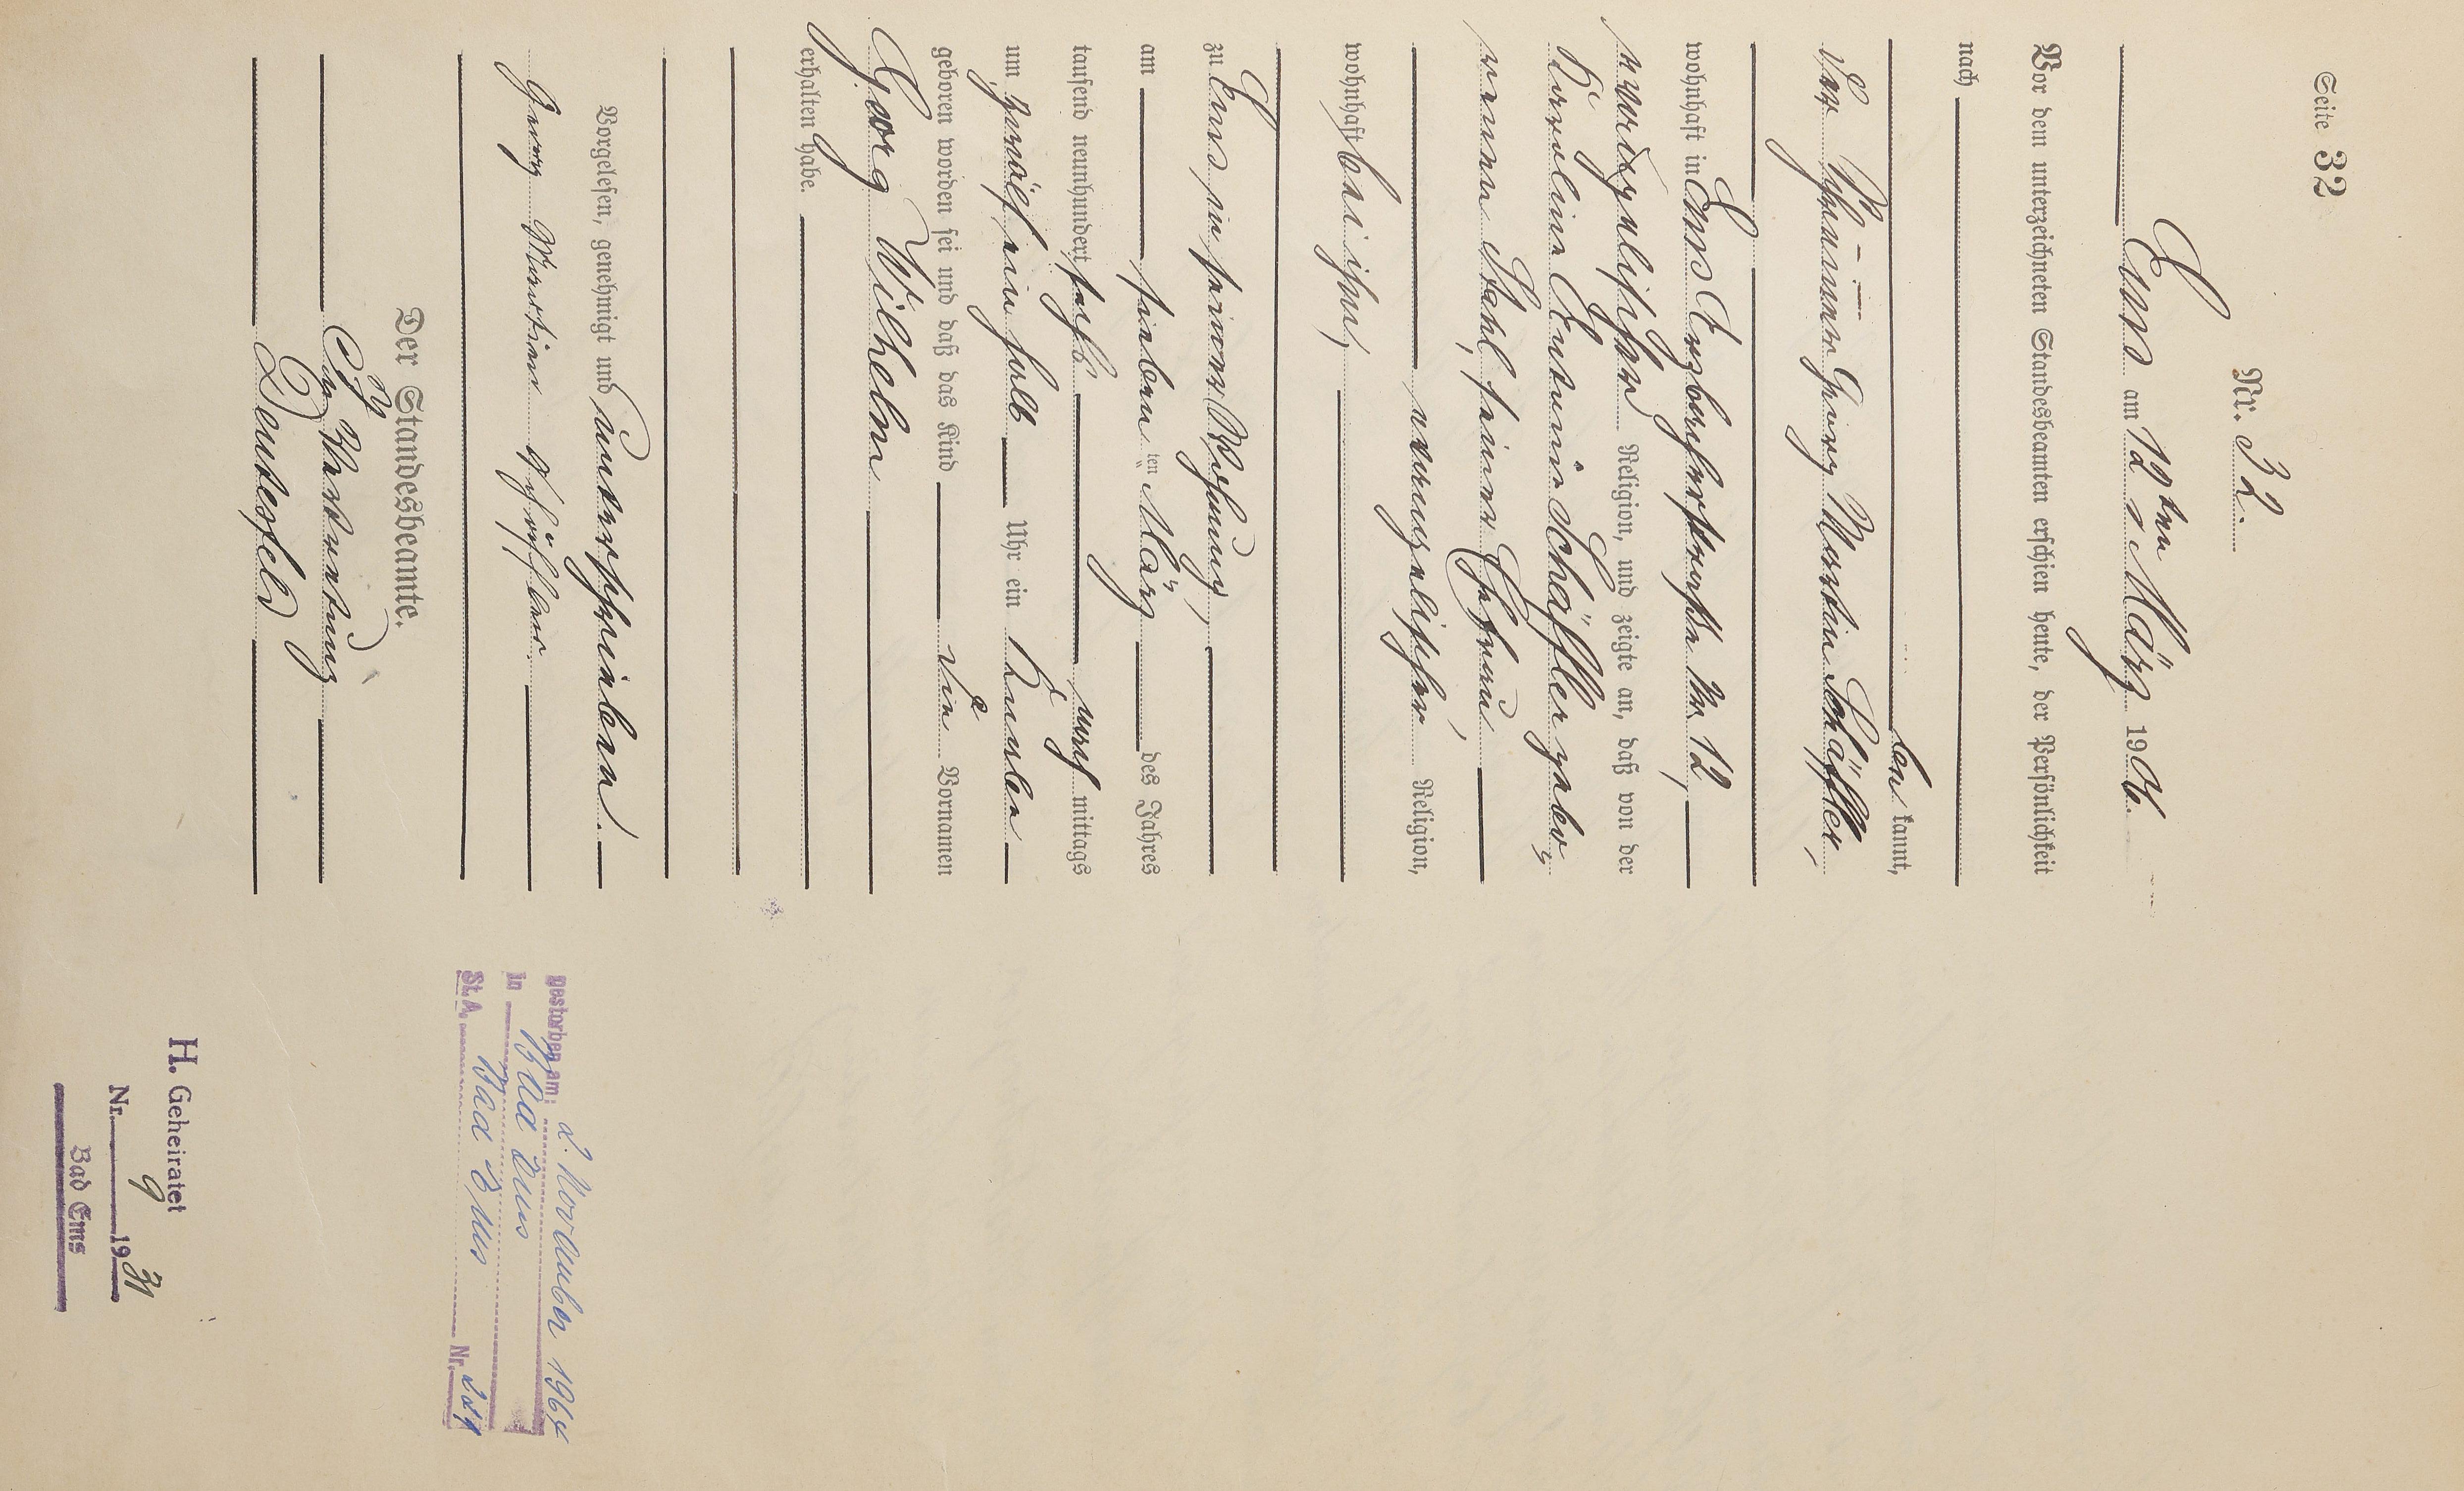 Seite 32
Nr. 32.
Ems am 12ten März 1906.
Vor dem unterzeichneten Standesbeamten erschien heute, der Persönlichkeit
nach
be kannt,
der Georg Martin Schäffler,
wohnhaft in Ems Arzbacherstraße Nr 12,
evangelischer Religion, und zeigte an, daß von der
Karoline Schäffler gebo
renen Stahl, seiner Ehefrau
evangelischer Religion,
wohnhaft bei ihm,
zu Ems in seiner Wohnung,
am sieben ten März des Jahres
tausend neunhundert sechs nach mittags
um zwölf ein halb Uhr ein Knabe
geboren worden sei und daß das Kind die Vornamen
Georg Wilhelm
erhalten habe.
Vorgelesen, genehmigt und unterschrieben.
Georg Martin Schäffler
Der Standesbeamte.
In Vertretung
gestorben am: 2. November 1964
in Bad Ems
St. A. Bad Ems Nr.
H. Geheiratet
Nr. 9 1931
Bad Ems